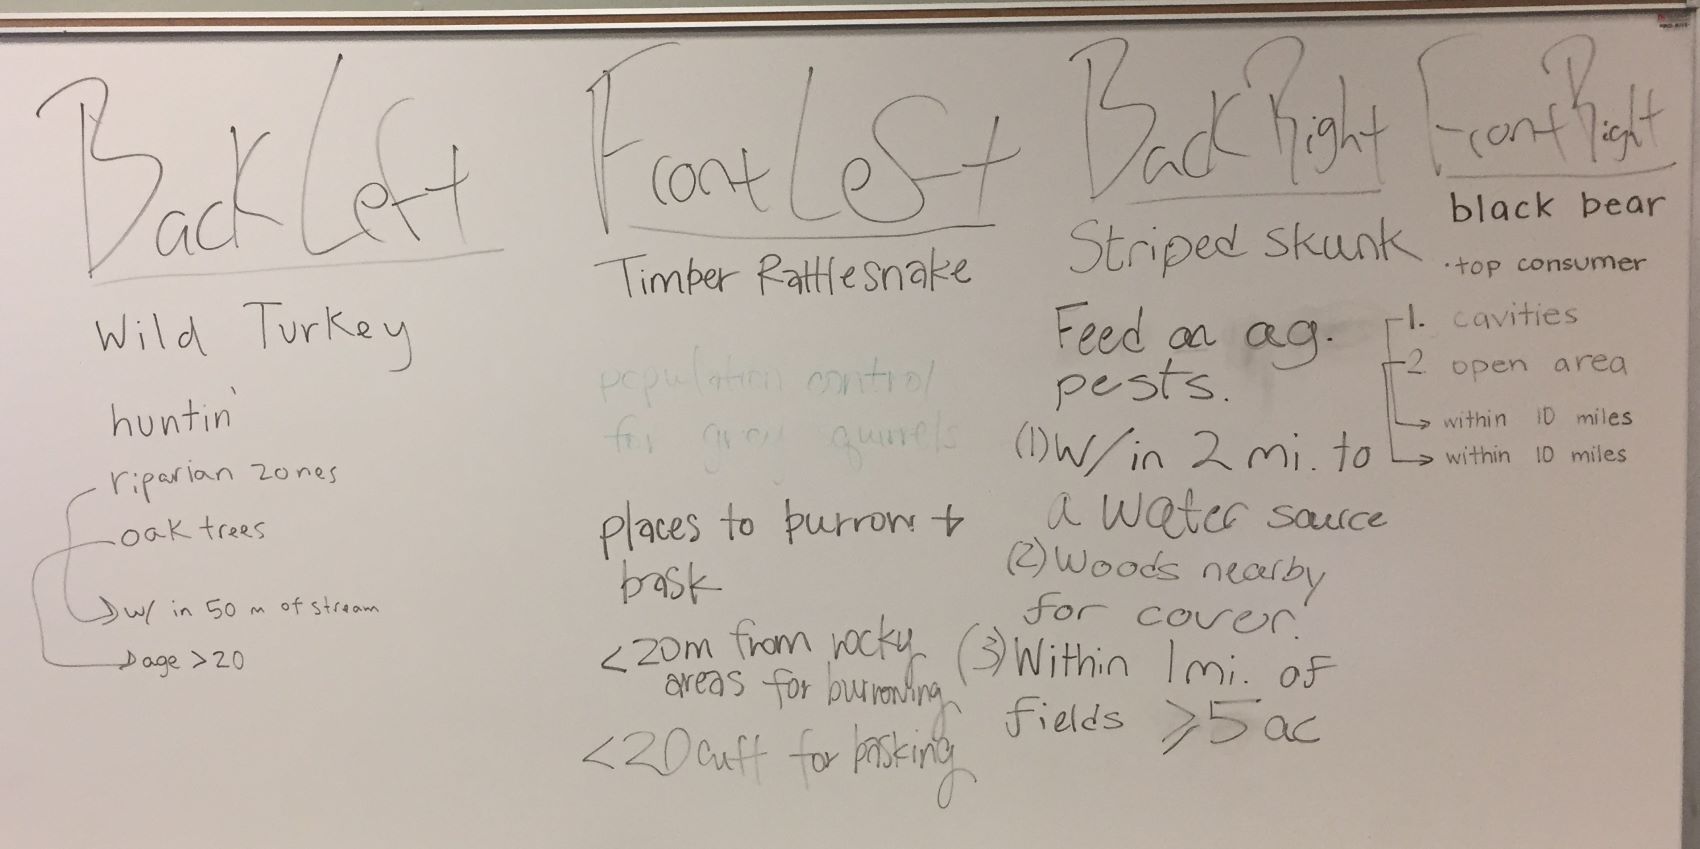 Back Left
Wild Turkey
huntin'
riparian zones
oak trees
w/ in 50 m of stream
age > 20
Front Left
Timber Rattlesnake
population control
for gray quirrels
places to burrow +
bask
<20m from rocky
areas for burrowing
<20 cuft for basking
Back Right
Striped skunk
Feed on ag.
pests.
(1) W/in 2 mi. to
a water source
(2) Woods nearby
for cover.
(3) Within 1 mi. of
fields ≥5 ac
Front Right
black bear
·top consumer
1. cavities
2 open area
within 10 miles
within 10 miles